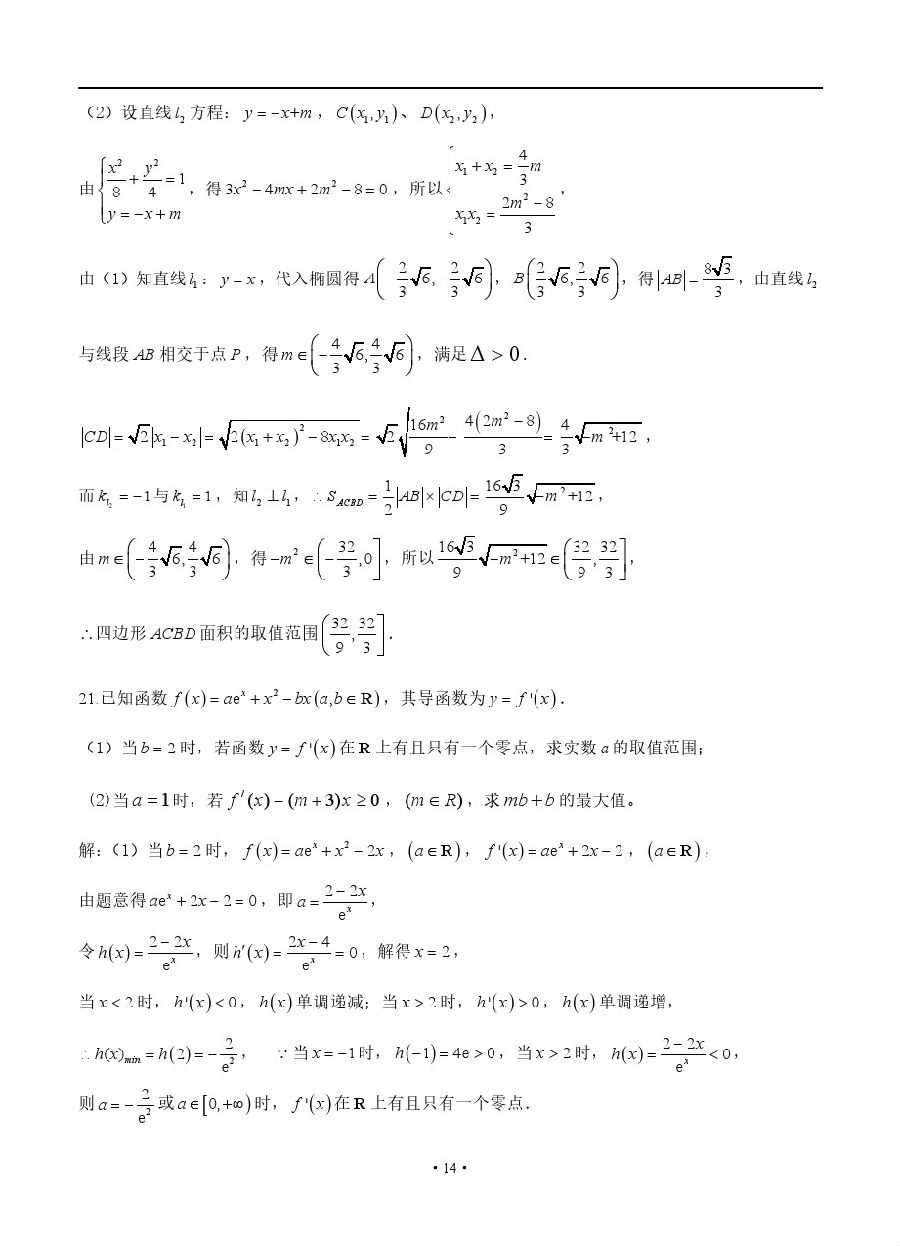 （2）设直线 l₂ 方程：y = −x+m，C(x₁,y₁)、D(x₂,y₂)，
由 { x²/8 + y²/4 = 1, y = −x + m，得 3x² − 4mx + 2m² − 8 = 0，所以 { x₁ + x₂ = 4/3 m, x₁x₂ = (2m² − 8)/3，
由（1）知直线 l₁：y − x，代入椭圆得 A( 2/3 √6, 2/3 √6)，B(2/3 √6, 2/3 √6)，得 |AB| − 8√3/3，由直线 l₂
与线段 AB 相交于点 P，得 m ∈ (−4/3 √6, 4/3 √6)，满足 Δ > 0．
|CD| = √2|x₁ − x₂| = √(2(x₁ + x₂)² − 8x₁x₂) = √2 √(16m²/9 − 4(2m² − 8)/3) = 4/3 √(−m²+12)，
而 k_l₂ = −1 与 k_l₁ = 1，知 l₂ ⊥ l₁，∴ S_ACBD = 1/2 |AB| × |CD| = 16√3/9 √(−m²+12)，
由 m ∈ (−4/3 √6, 4/3 √6)，得 −m² ∈ (−32/3, 0]，所以 16√3/9 √(−m²+12) ∈ (32/9, 32/3]，
∴四边形 ACBD 面积的取值范围 (32/9, 32/3]．
21.已知函数 f(x) = aeˣ + x² − bx (a,b ∈ R)，其导函数为 y = f'(x)．
（1）当 b = 2 时，若函数 y = f'(x) 在 R 上有且只有一个零点，求实数 a 的取值范围；
(2)当 a = 1 时，若 f′(x) − (m + 3)x ≥ 0，(m ∈ R)，求 mb + b 的最大值。
解：（1）当 b = 2 时，f(x) = aeˣ + x² − 2x，(a ∈ R)，f'(x) = aeˣ + 2x − 2，(a ∈ R)，
由题意得 aeˣ + 2x − 2 = 0，即 a = (2 − 2x)/eˣ，
令 h(x) = (2 − 2x)/eˣ，则 h′(x) = (2x − 4)/eˣ = 0，解得 x = 2，
当 x < 2 时，h'(x) < 0，h(x) 单调递减；当 x > 2 时，h'(x) > 0，h(x) 单调递增，
∴ h(x)min = h(2) = −2/e²， ∵ 当 x = −1 时，h(−1) = 4e > 0，当 x > 2 时，h(x) = (2 − 2x)/eˣ < 0，
则 a = −2/e² 或 a ∈ [0,+∞) 时，f'(x) 在 R 上有且只有一个零点．
· 14 ·